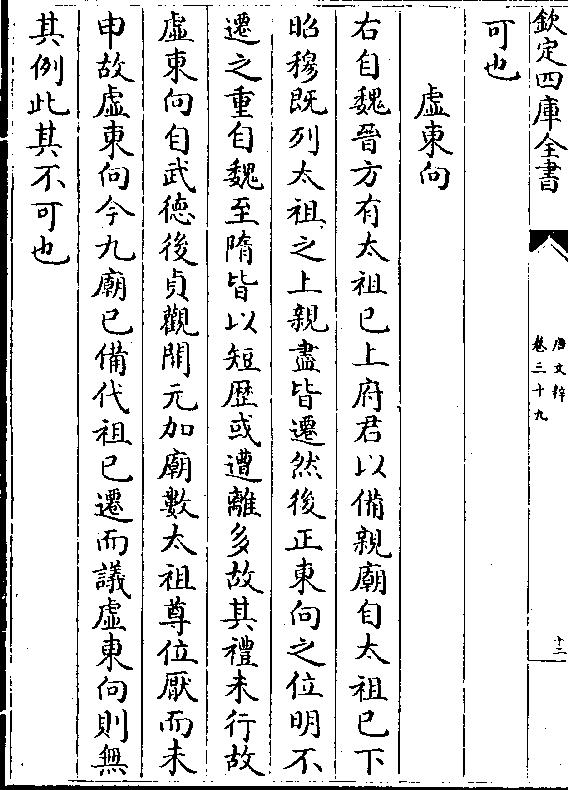 欽定四庫全書
唐文粹
卷三十九
十三
可也
虛東向
右自魏晉方有太祖已上府君以備親廟自太祖已下
昭穆既列太祖之上親盡皆遷然後正東向之位明不
遷之重自魏至隋皆以短歴或遭離多故其禮未行故
虛東向自武德後貞觀開元加廟數太祖尊位厭而未
申故虛東向今九廟已備代祖已遷而議虛東向則無
其例此其不可也